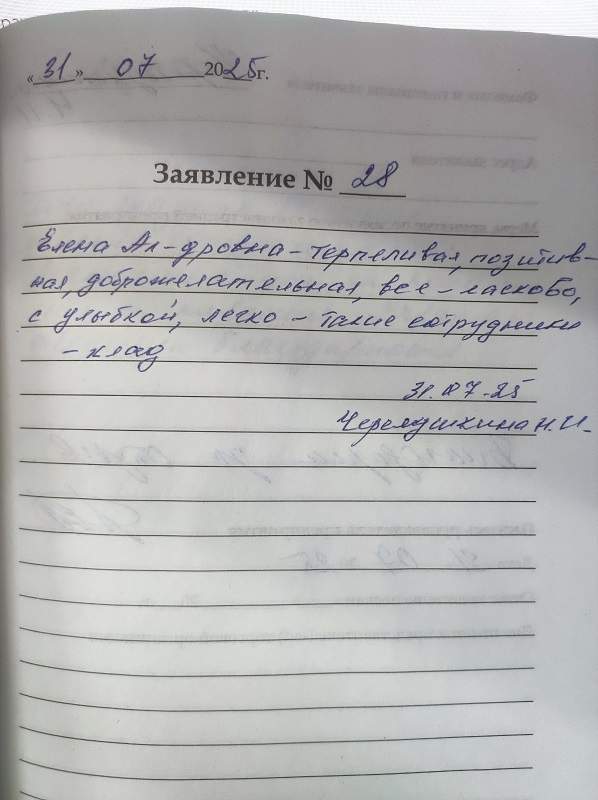 «31» 07 2025г.
Заявление № 28
Елена Ал-дровна – терпеливая, позитив-
ная, доброжелательная, все – ласково,
с улыбкой, легко – такие сотрудники
– клад
31.07.25
Черемушкина Н.И.